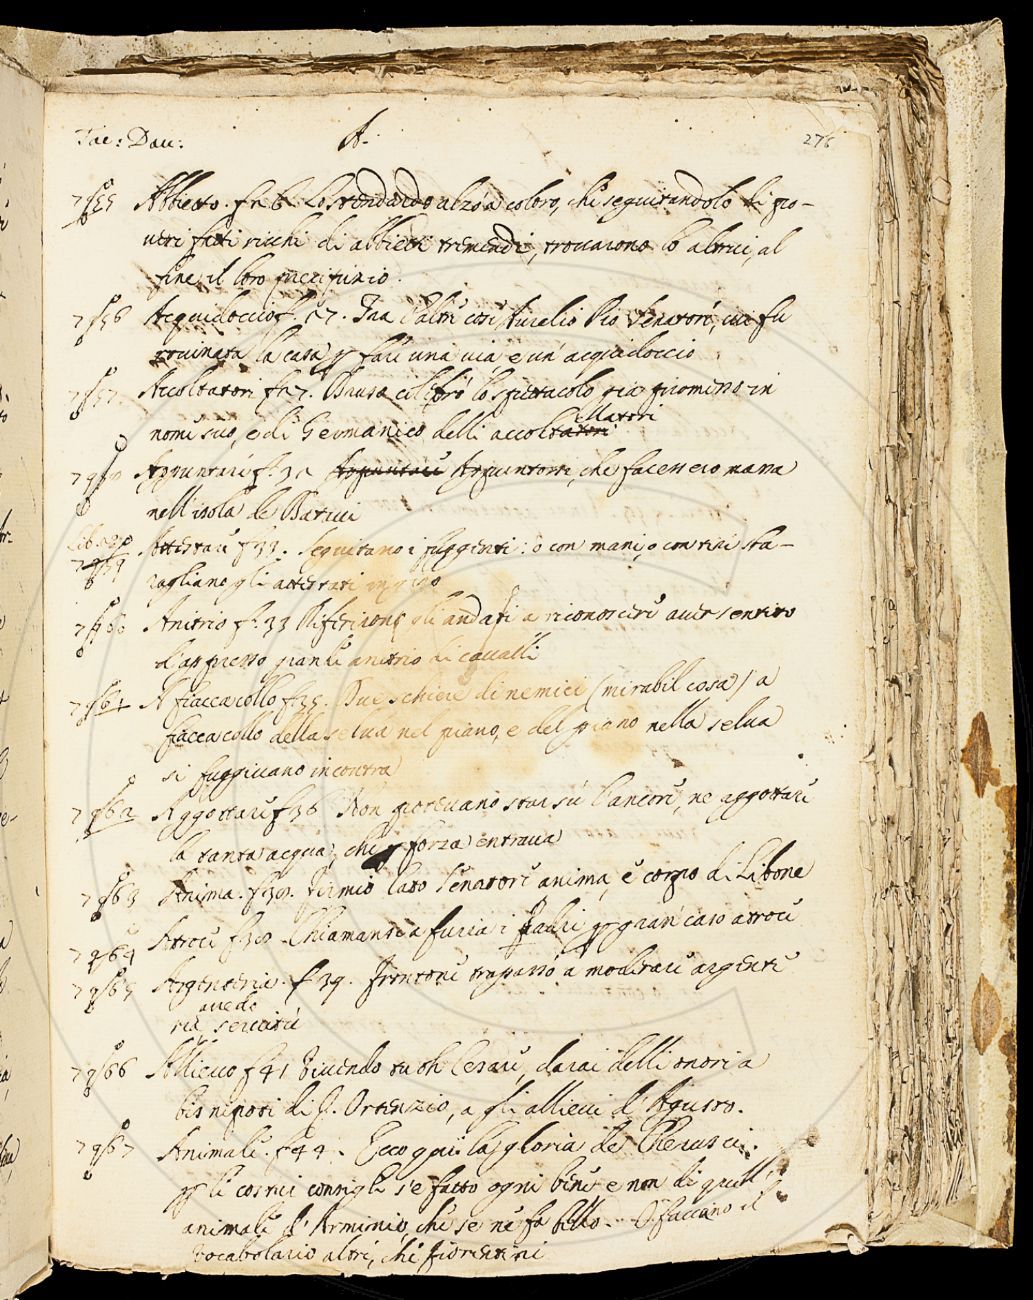 Tac: Dav: A. 276
7955 Abbietto. f. 6. Lo stendardo alzò a coloro, che seguitandolo di po-
veri fatti ricchi di abbietti tremendi, trovarono lo altrui, al
fine il loro precipizio.
7956 Acquidoccio f. 27. Tra l'altri così Aurelio Pio Senatore, cui fu
rovinata la casa per fare una via e un acquidoccio
7957 Accoltatori f. 27. Druso celebrò lo spettacolo che promesso in
nome suo, e di Germanico delli accoltatori
ellatori
f. 31 Appuntare che facessero massa
nell'isola de Batavi
Atterrati f. 33. Seguitano i fuggenti: o con mani, o con tiri sba-
ragliano gli atterrati
7960 Anitrio f. 33 Riferirono gli andati a riconoscere aver sentito
d'appresso grande anitrio di cavalli
7961 A fiaccacollo f. 35. Due schiere di nemici (mirabil cosa) a
fiaccacollo della selva nel piano, e del piano nella selva
si fuggivano incontra
7962 Aggottare f. 36 Non potevano star sù l'ancore, ne aggottare
la tanta acqua, che per forza entrava
7963 Anima. f. 38. Firmio Cato Senatore anima, e corpo di Libone
7964 Atroce f. 38 Chiamansi a furia i Padri per gran caso atroce
7965 Argenteria. f. 39. Frontone trapassò a moderare argente
avede
ria, servitù
7966 Allievo f. 41 Vivendo tu oh Cesare, darai delli onori a
bisnipoti di Q. Ortenzio, a gli allievi d'Agusto.
7967 Animale. f. 44. Ecco qui la gloria de Cherusci.
per li costui consigli s'è fatto ogni bene e non di quell'
animale d'Arminio, che se ne fa bello. O facciano il
Vocabolario altri, che Fiorentini